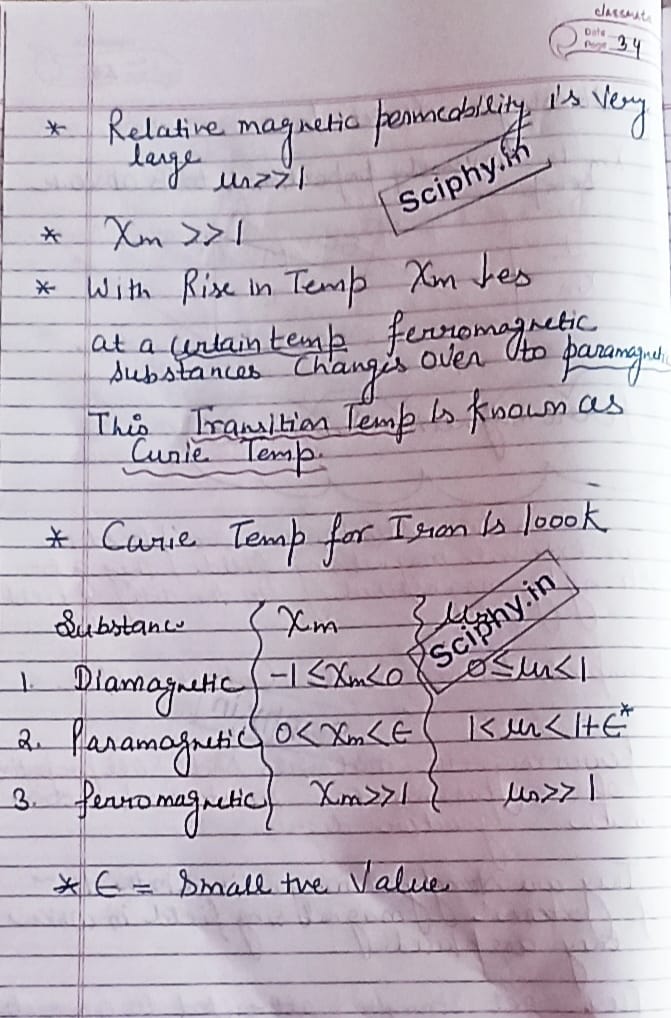 classmate
Date
Page 34
* Relative magnetic permeability is very
large μr>>1
Sciphy.in
* Xm >>1
* With Rise in Temp Xm ↓es
at a certain temp ferromagnetic
substances Changes over to paramagnetic
This Transition Temp Is known as
Curie Temp.
* Curie Temp for Iron Is 1000k
Substance Xm μr
Sciphy.in
1. Diamagnetic -1≤Xm<0 0≤μr<1
2. Paramagnetic 0<Xm<ϵ 1<μr<1+ϵ*
3. ferromagnetic Xm>>1 μr>>1
* ϵ = Small +ve Value